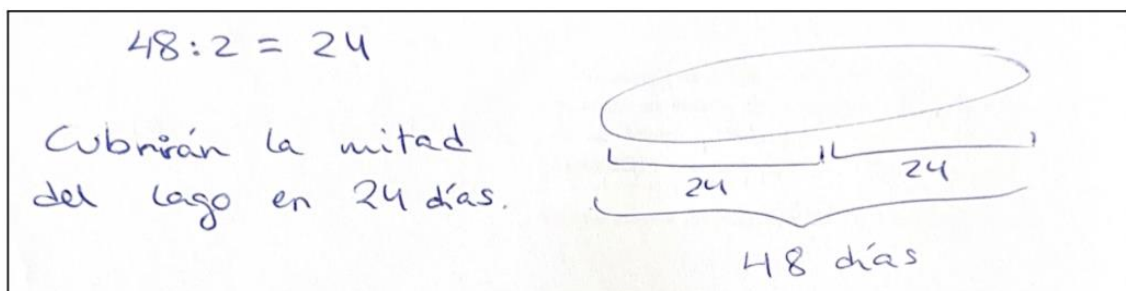 48:2 = 24
Cubrirán la mitad
del lago en 24 días.
24
24
48 días